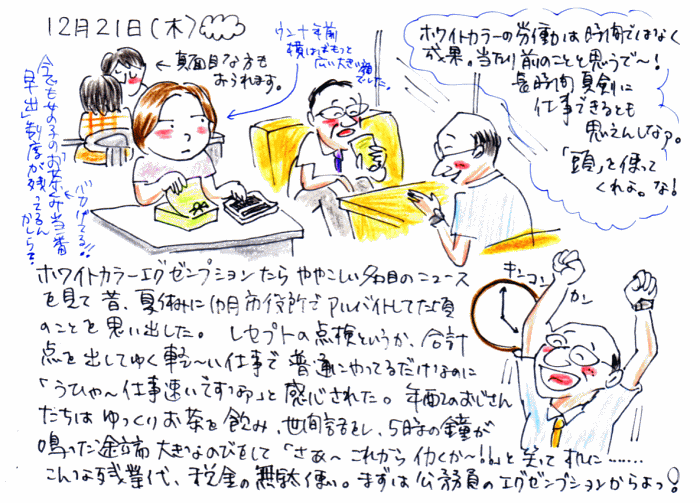 12月21日(木)
真面目な方も
おられます。
ウン十年前
横はばもっと
広い大きい箱
でした。
ホワイトカラーの労働は時間ではなく
成果。当たり前のことと思うで〜!
長時間真剣に
仕事できるとも
思えんしなァ。
「頭」を使って
くれよ。な!
今でも女の子のお茶くみ当番
「早出」制度が残ってるん
かしら?
ホワイトカラーエグゼンプションたらややこしい名目のニュース
を見て昔、夏休みに1カ月市役所でアルバイトしてた頃
のことを思い出した。 レセプトの点検というか、合計
点を出してゆく軽〜い仕事で普通にやってるだけなのに
「うひゃ〜仕事速いですなァ」と感心された。年配のおじさん
たちはゆっくりお茶を飲み、世間話をし、5時の鐘が
鳴った途端大きなのびをして「さぁ〜これから行くか〜!!」と笑って
こんな残業代、税金の無駄使い。まずは公務員のエグゼンプションからよっ!
キン
コン
カン